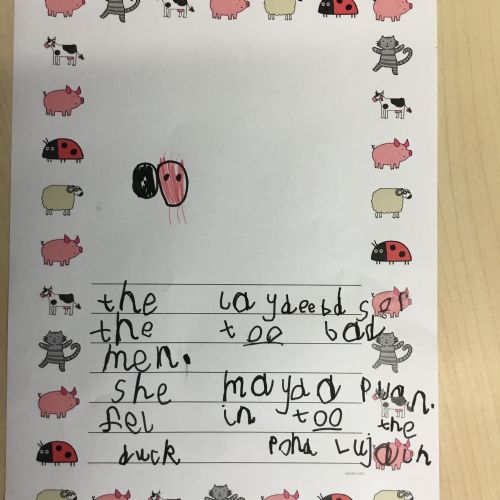 the laydeebd ser
the too bad
men.
she mayd a plan.
fel in too the
duck pond Lujain